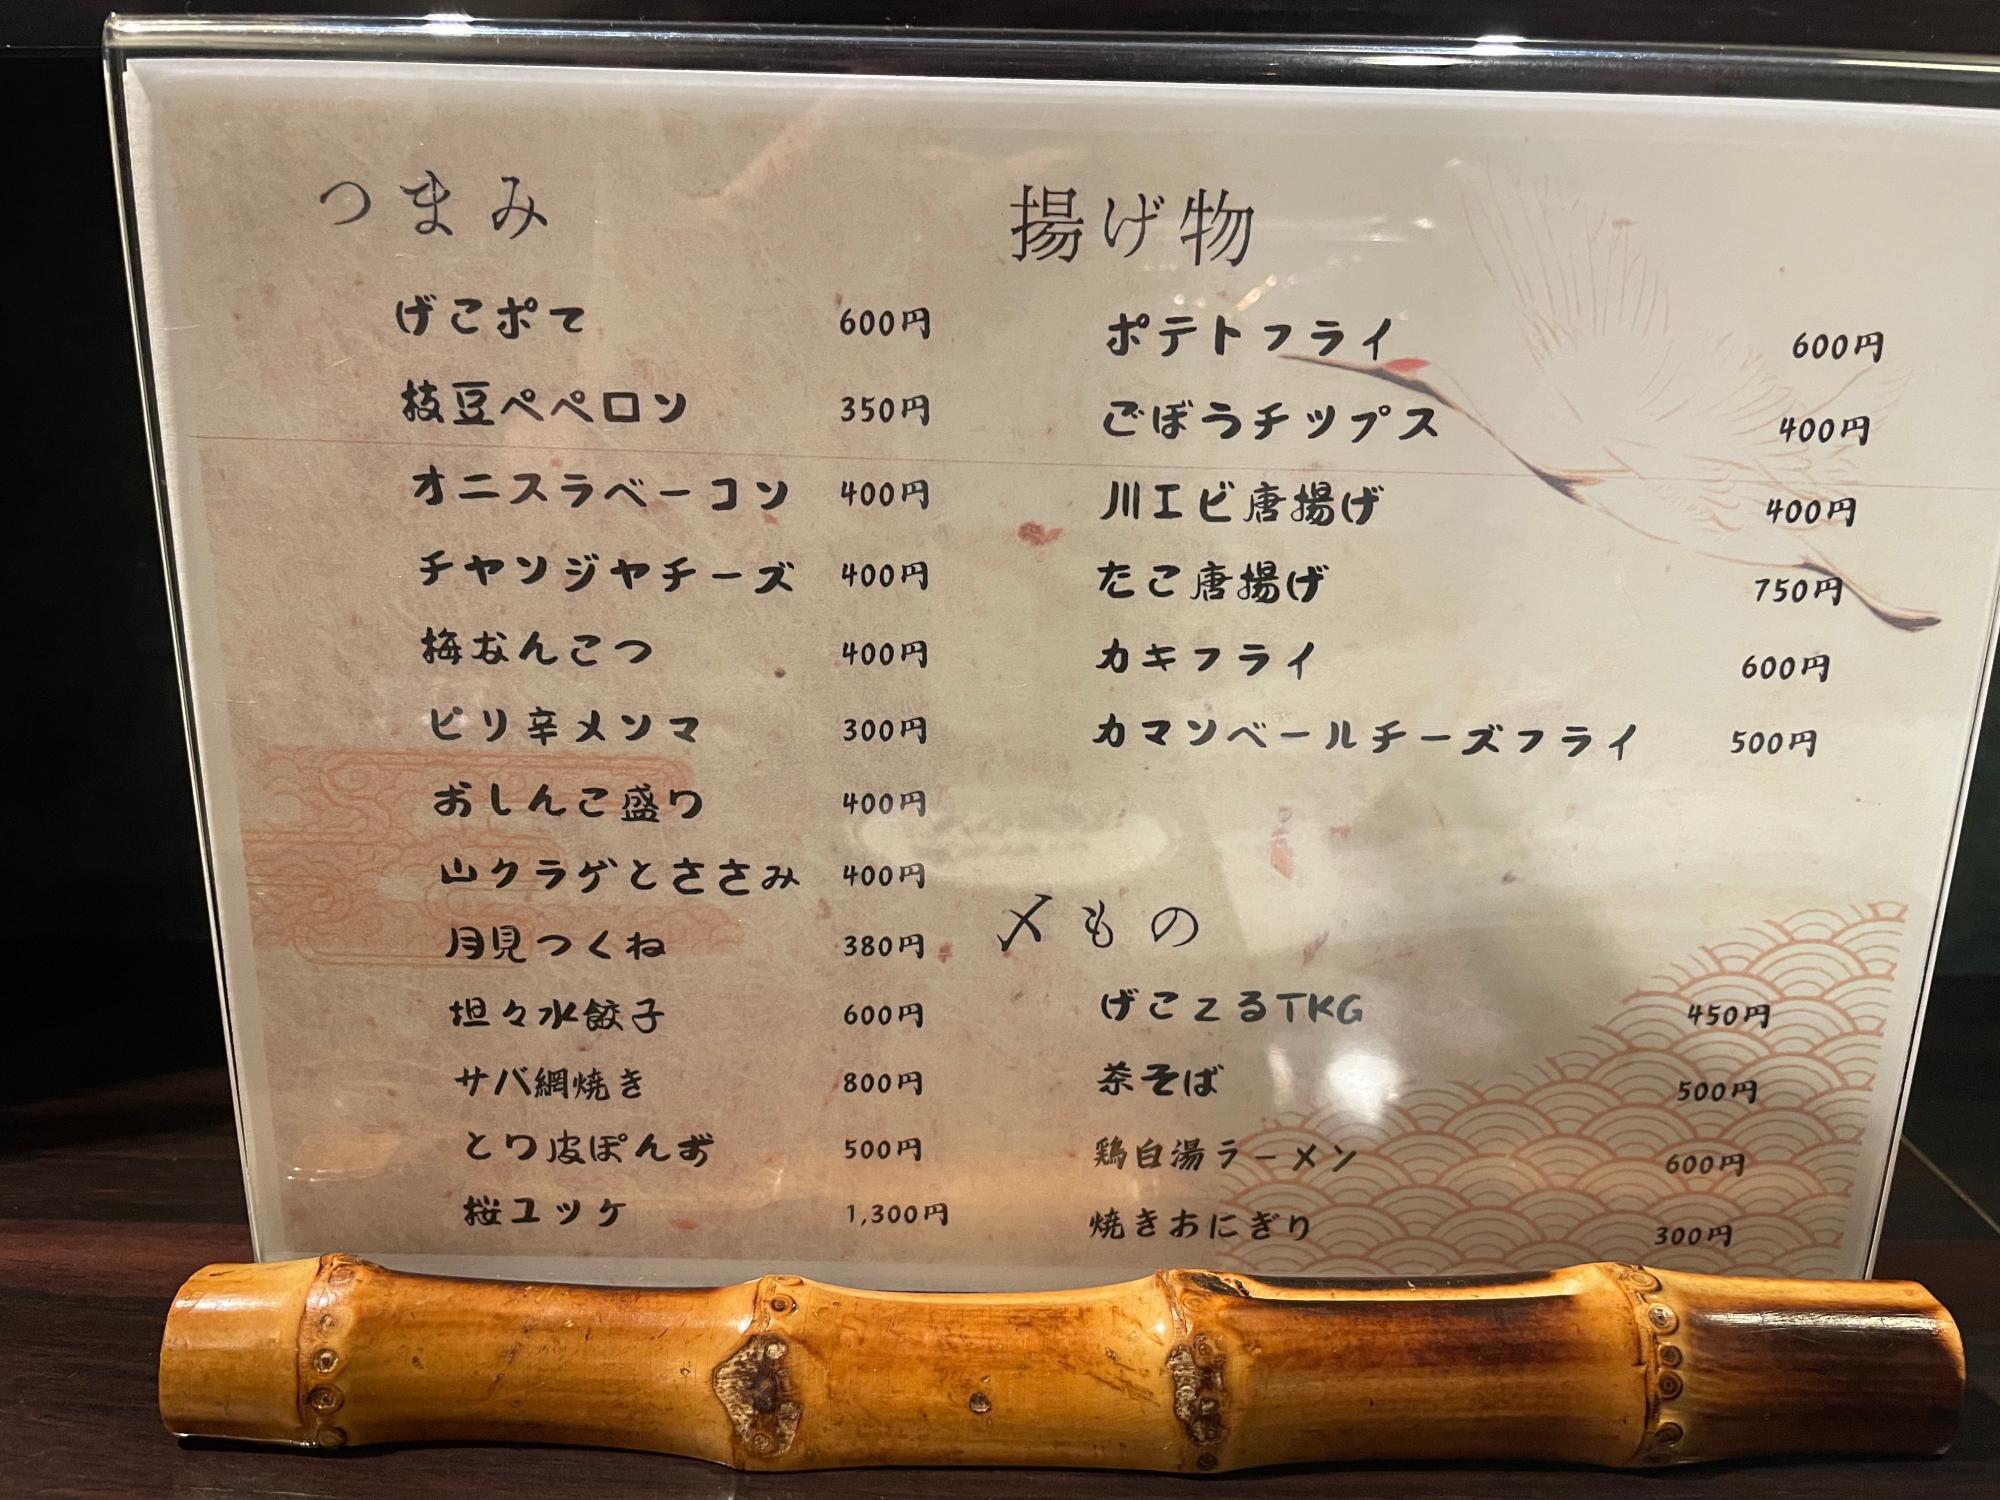 つまみ
げこポて 600円
枝豆ペペロン 350円
オニスラベーコン 400円
チャンジャチーズ 400円
梅なんこつ 400円
ピリ辛メンマ 300円
おしんこ盛り 400円
山クラゲとささみ 400円
月見つくね 380円
坦々水餃子 600円
サバ網焼き 800円
とり皮ぽんず 500円
桜ユッケ 1,300円
揚げ物
ポテトフライ 600円
ごぼうチップス 400円
川エビ唐揚げ 400円
たこ唐揚げ 750円
カキフライ 600円
カマンベールチーズフライ 500円
〆もの
げこてるTKG 450円
茶そば 500円
鶏白湯ラーメン 600円
焼きおにぎり 300円